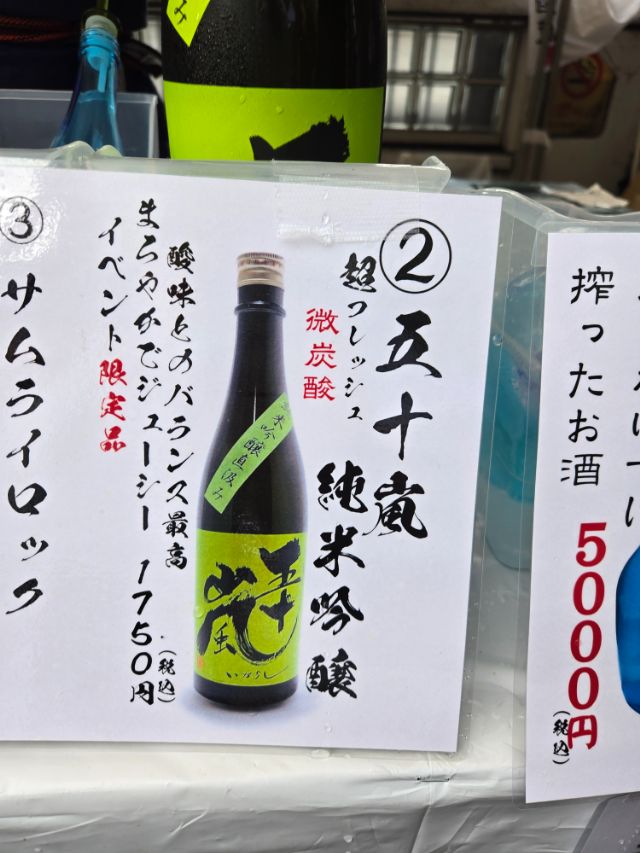 ②五十嵐
純米吟醸
超フレッシュ
微炭酸
純米吟醸直汲み
五十嵐
いがらし
酸味とのバランス最高
まろやかでジューシー 1750円
(税込)
イベント限定品
③
サムライロック
搾ったお酒
5000円
(税込)
み